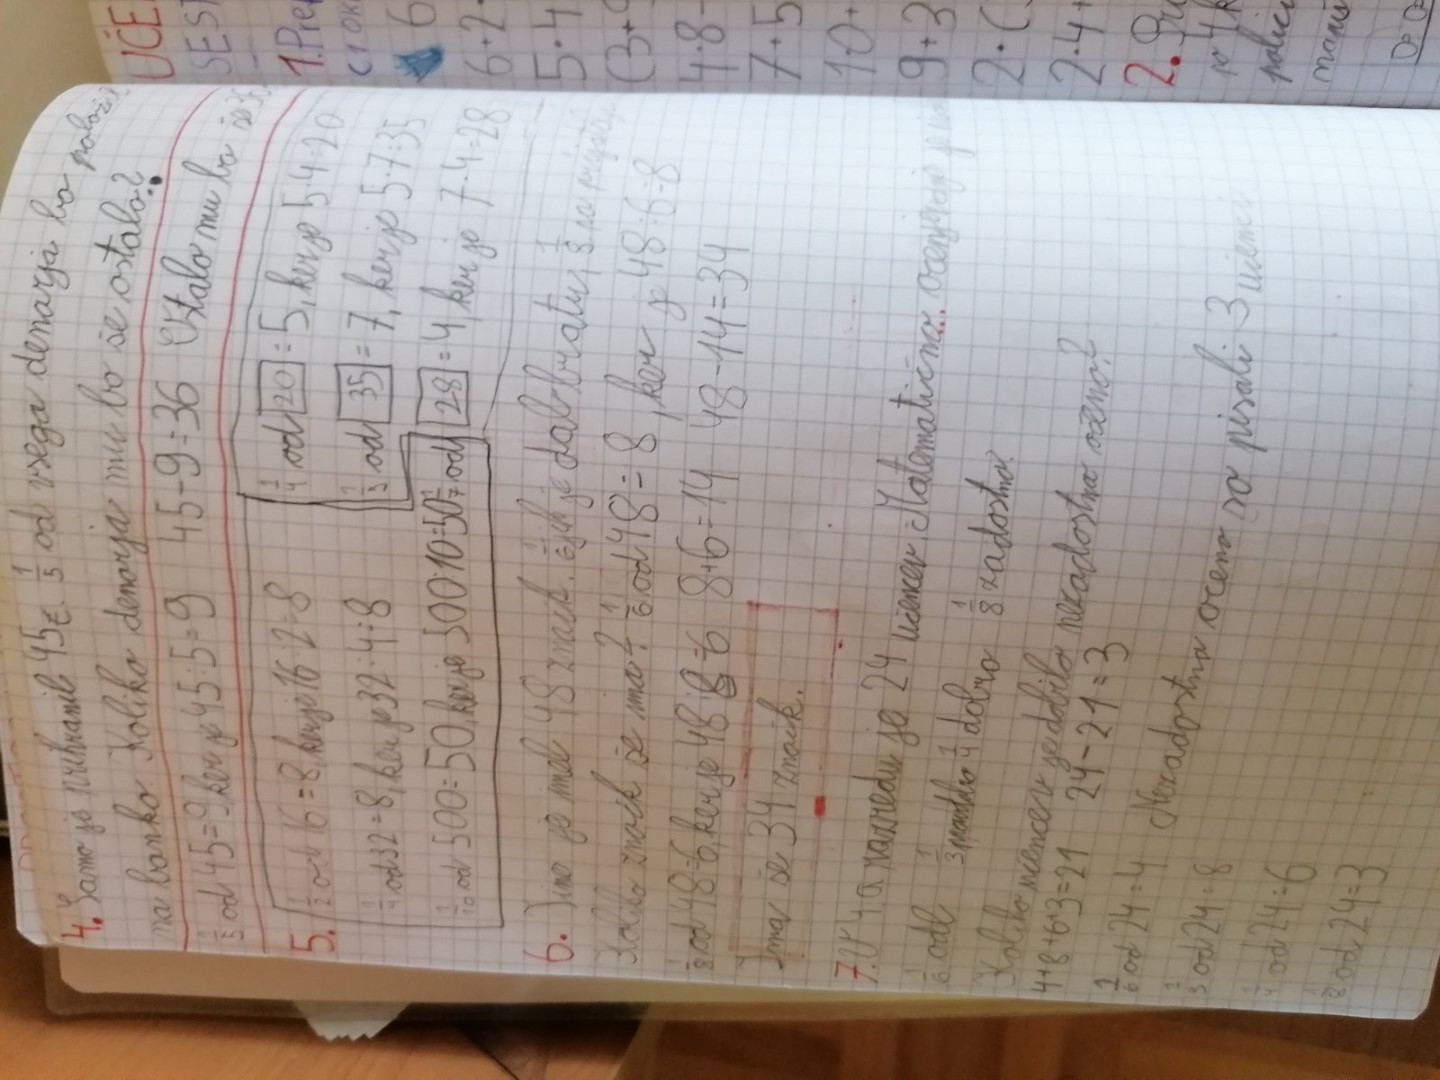 4. Samo je prihranil 45 €. 1/5 od vsega denarja bo položil
na banko. Koliko denarja mu bo še ostalo?
1/5 od 45 = 9, ker je 45:5=9 45-9=36 Ostalo mu bo še 36
5. 1/2 od 16 = 8, ker je 16:2=8
1/4 od 32 = 8, ker je 32:4=8
1/10 od 500 = 50, ker je 500:10=50
1/4 od 20 = 5, ker je 5·4=20
1/5 od 35 = 7, ker je 5·7=35
1/7 od 28 = 4, ker je 7·4=28
6. Tine je imel 48 značk. 1/6 jih je dal bratu, 1/8 pa
Koliko značk še ima? 1/6 od 48 = 8, ker je 48:6=8
1/8 od 48=6, ker je 48:8=6 8+6=14 48-14=34
Ima še 34 značk.
7. V 4.a razredu je 24 učencev. Matematično
1/6 odl 1/3 prav dobro 1/4 dobro 1/8 zadostno.
Koliko učencev je dobilo nezadostno oceno?
4+8+6+3=21 24-21=3
1/6 od 24=4 Nezadostno oceno so pisali 3 učenci.
1/3 od 24=8
1/4 od 24=6
1/8 od 24=3
UČE
1.
(1 OK
6
6+2·
5·4
(3+
4·8-
7+5
10+
9+3
2·(
2·4+
2.
po 4 k
polici